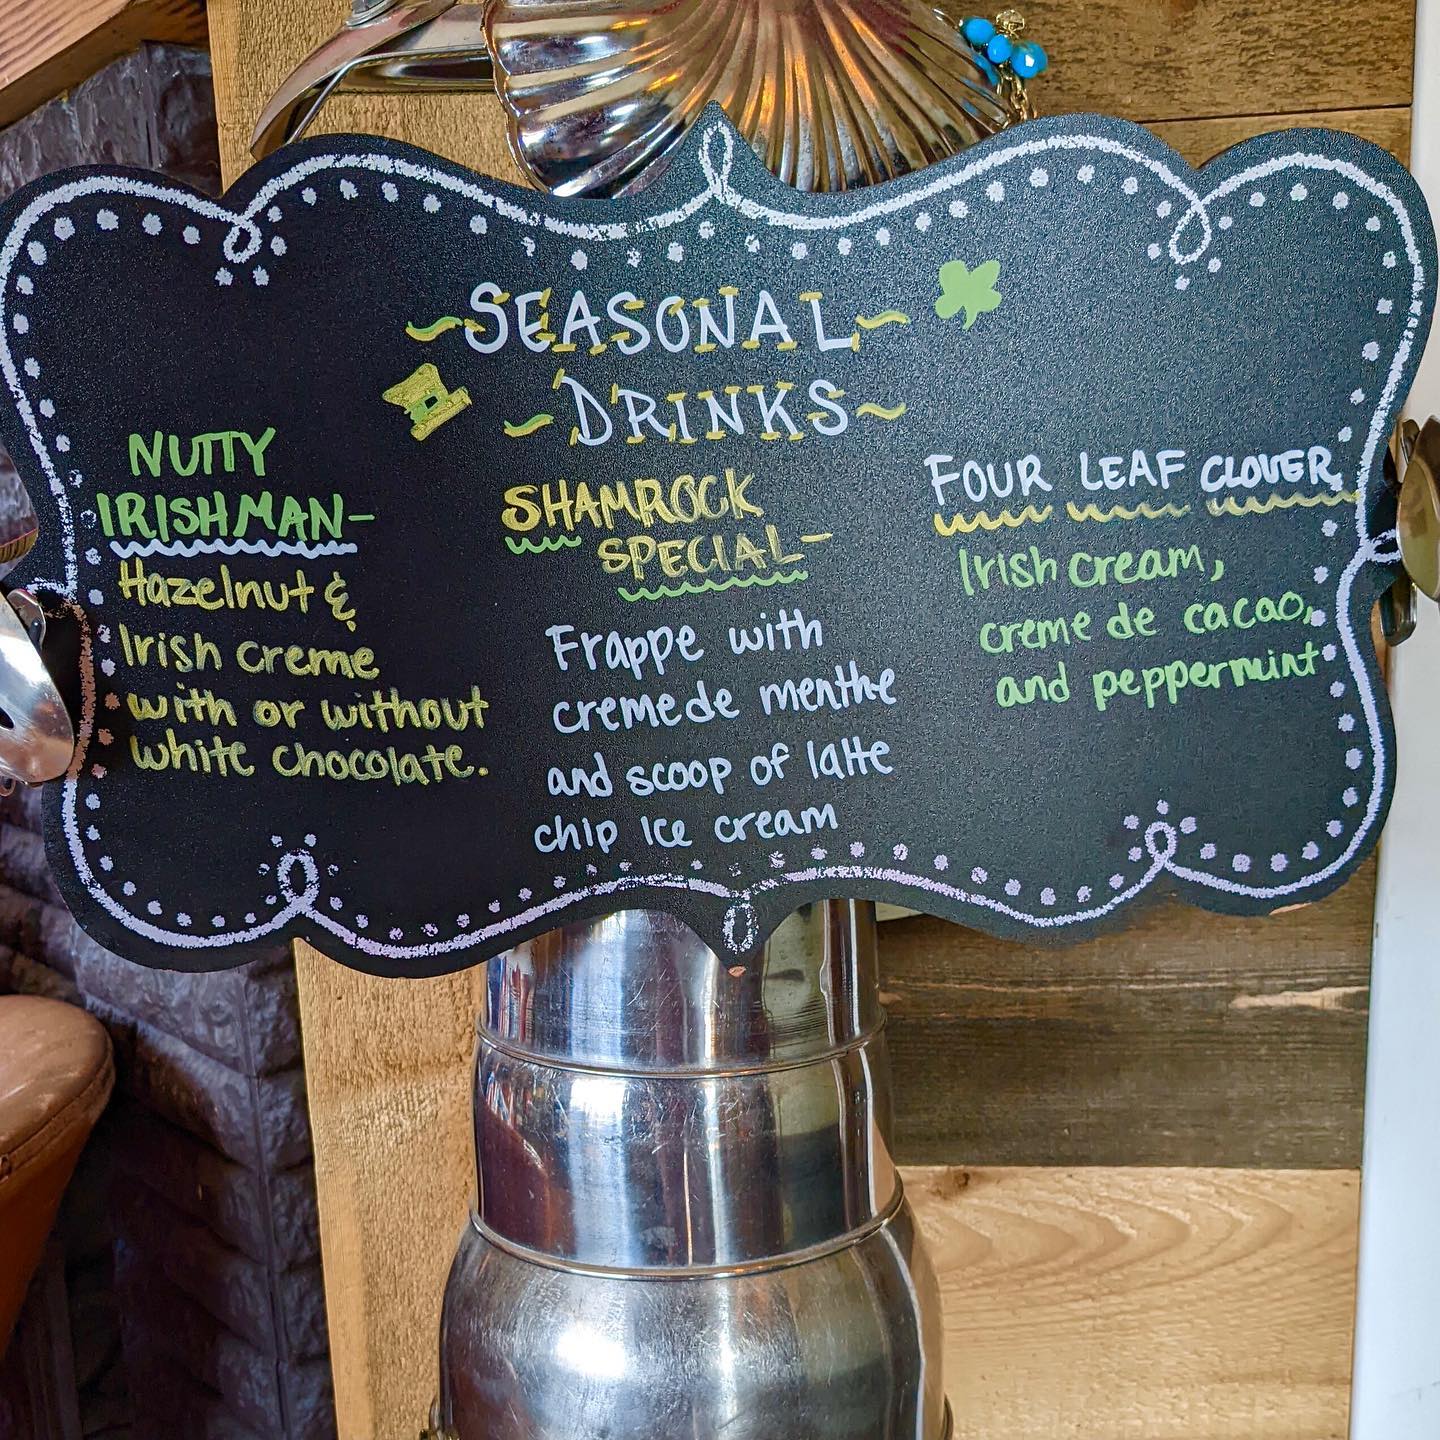 ~SEASONAL~
~DRINKS~
NUTTY
IRISHMAN-
Hazelnut &
Irish creme
with or without
white chocolate.
SHAMROCK
SPECIAL-
Frappe with
creme de menthe
and scoop of latte
chip ice cream
FOUR LEAF CLOVER
Irish cream,
creme de cacao,
and peppermint